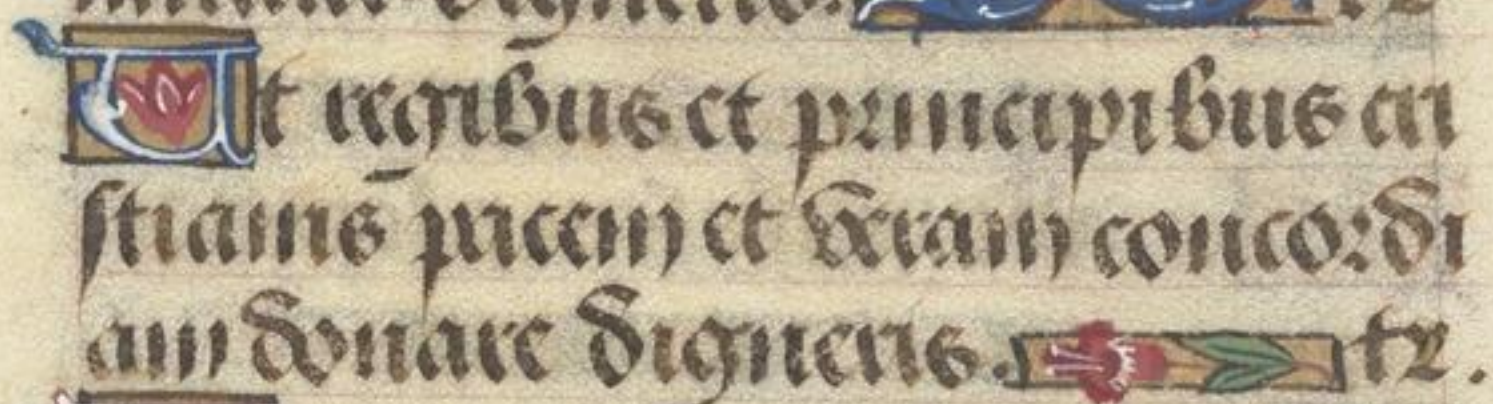 digneris. tr
Ut regibus et principibus cri
stianis pacem et veram concordi
am donare digneris. tr.